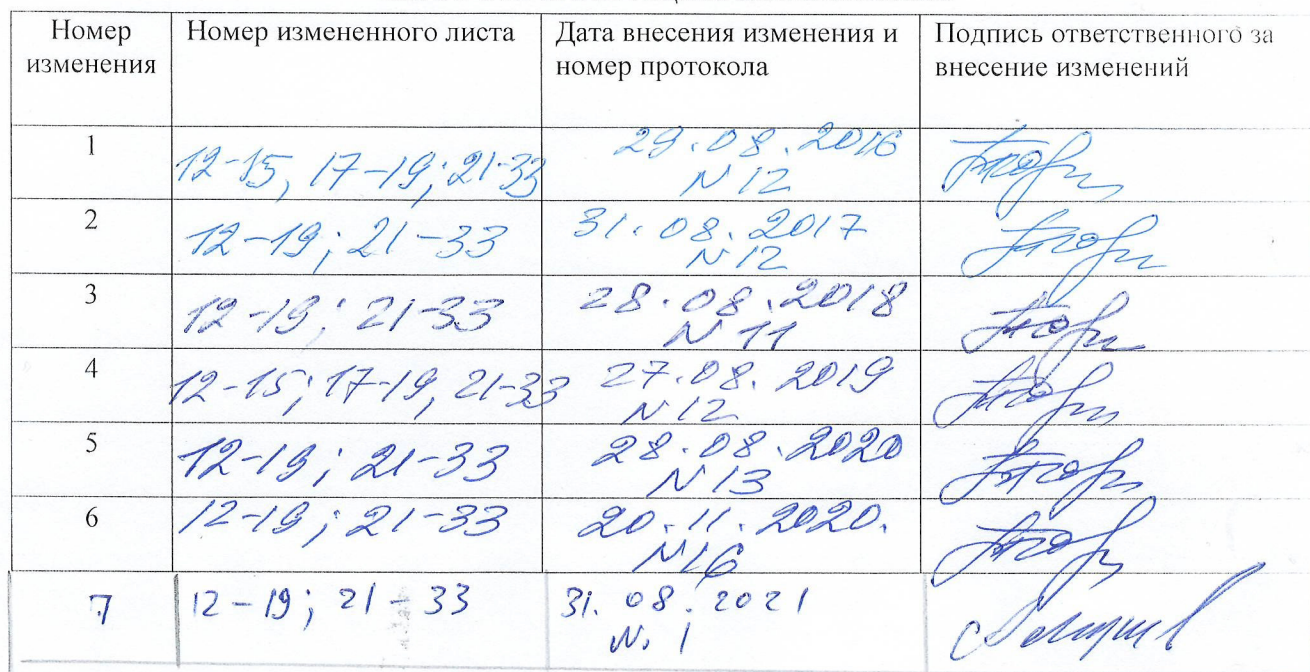 Номер изменения
Номер измененного листа
Дата внесения изменения и номер протокола
Подпись ответственного за внесение изменений
1
12-15, 17-19; 21-33
29.08.2016
N 12
2
12-19; 21-33
31.08.2017
N 12
3
12-19; 21-33
28.08.2018
N 11
4
12-15; 17-19, 21-33
27.08.2019
N 12
5
12-19; 21-33
28.08.2020
N 13
6
12-19; 21-33
20.11.2020.
N16
7
12-19; 21-33
31.08.2021
N. 1